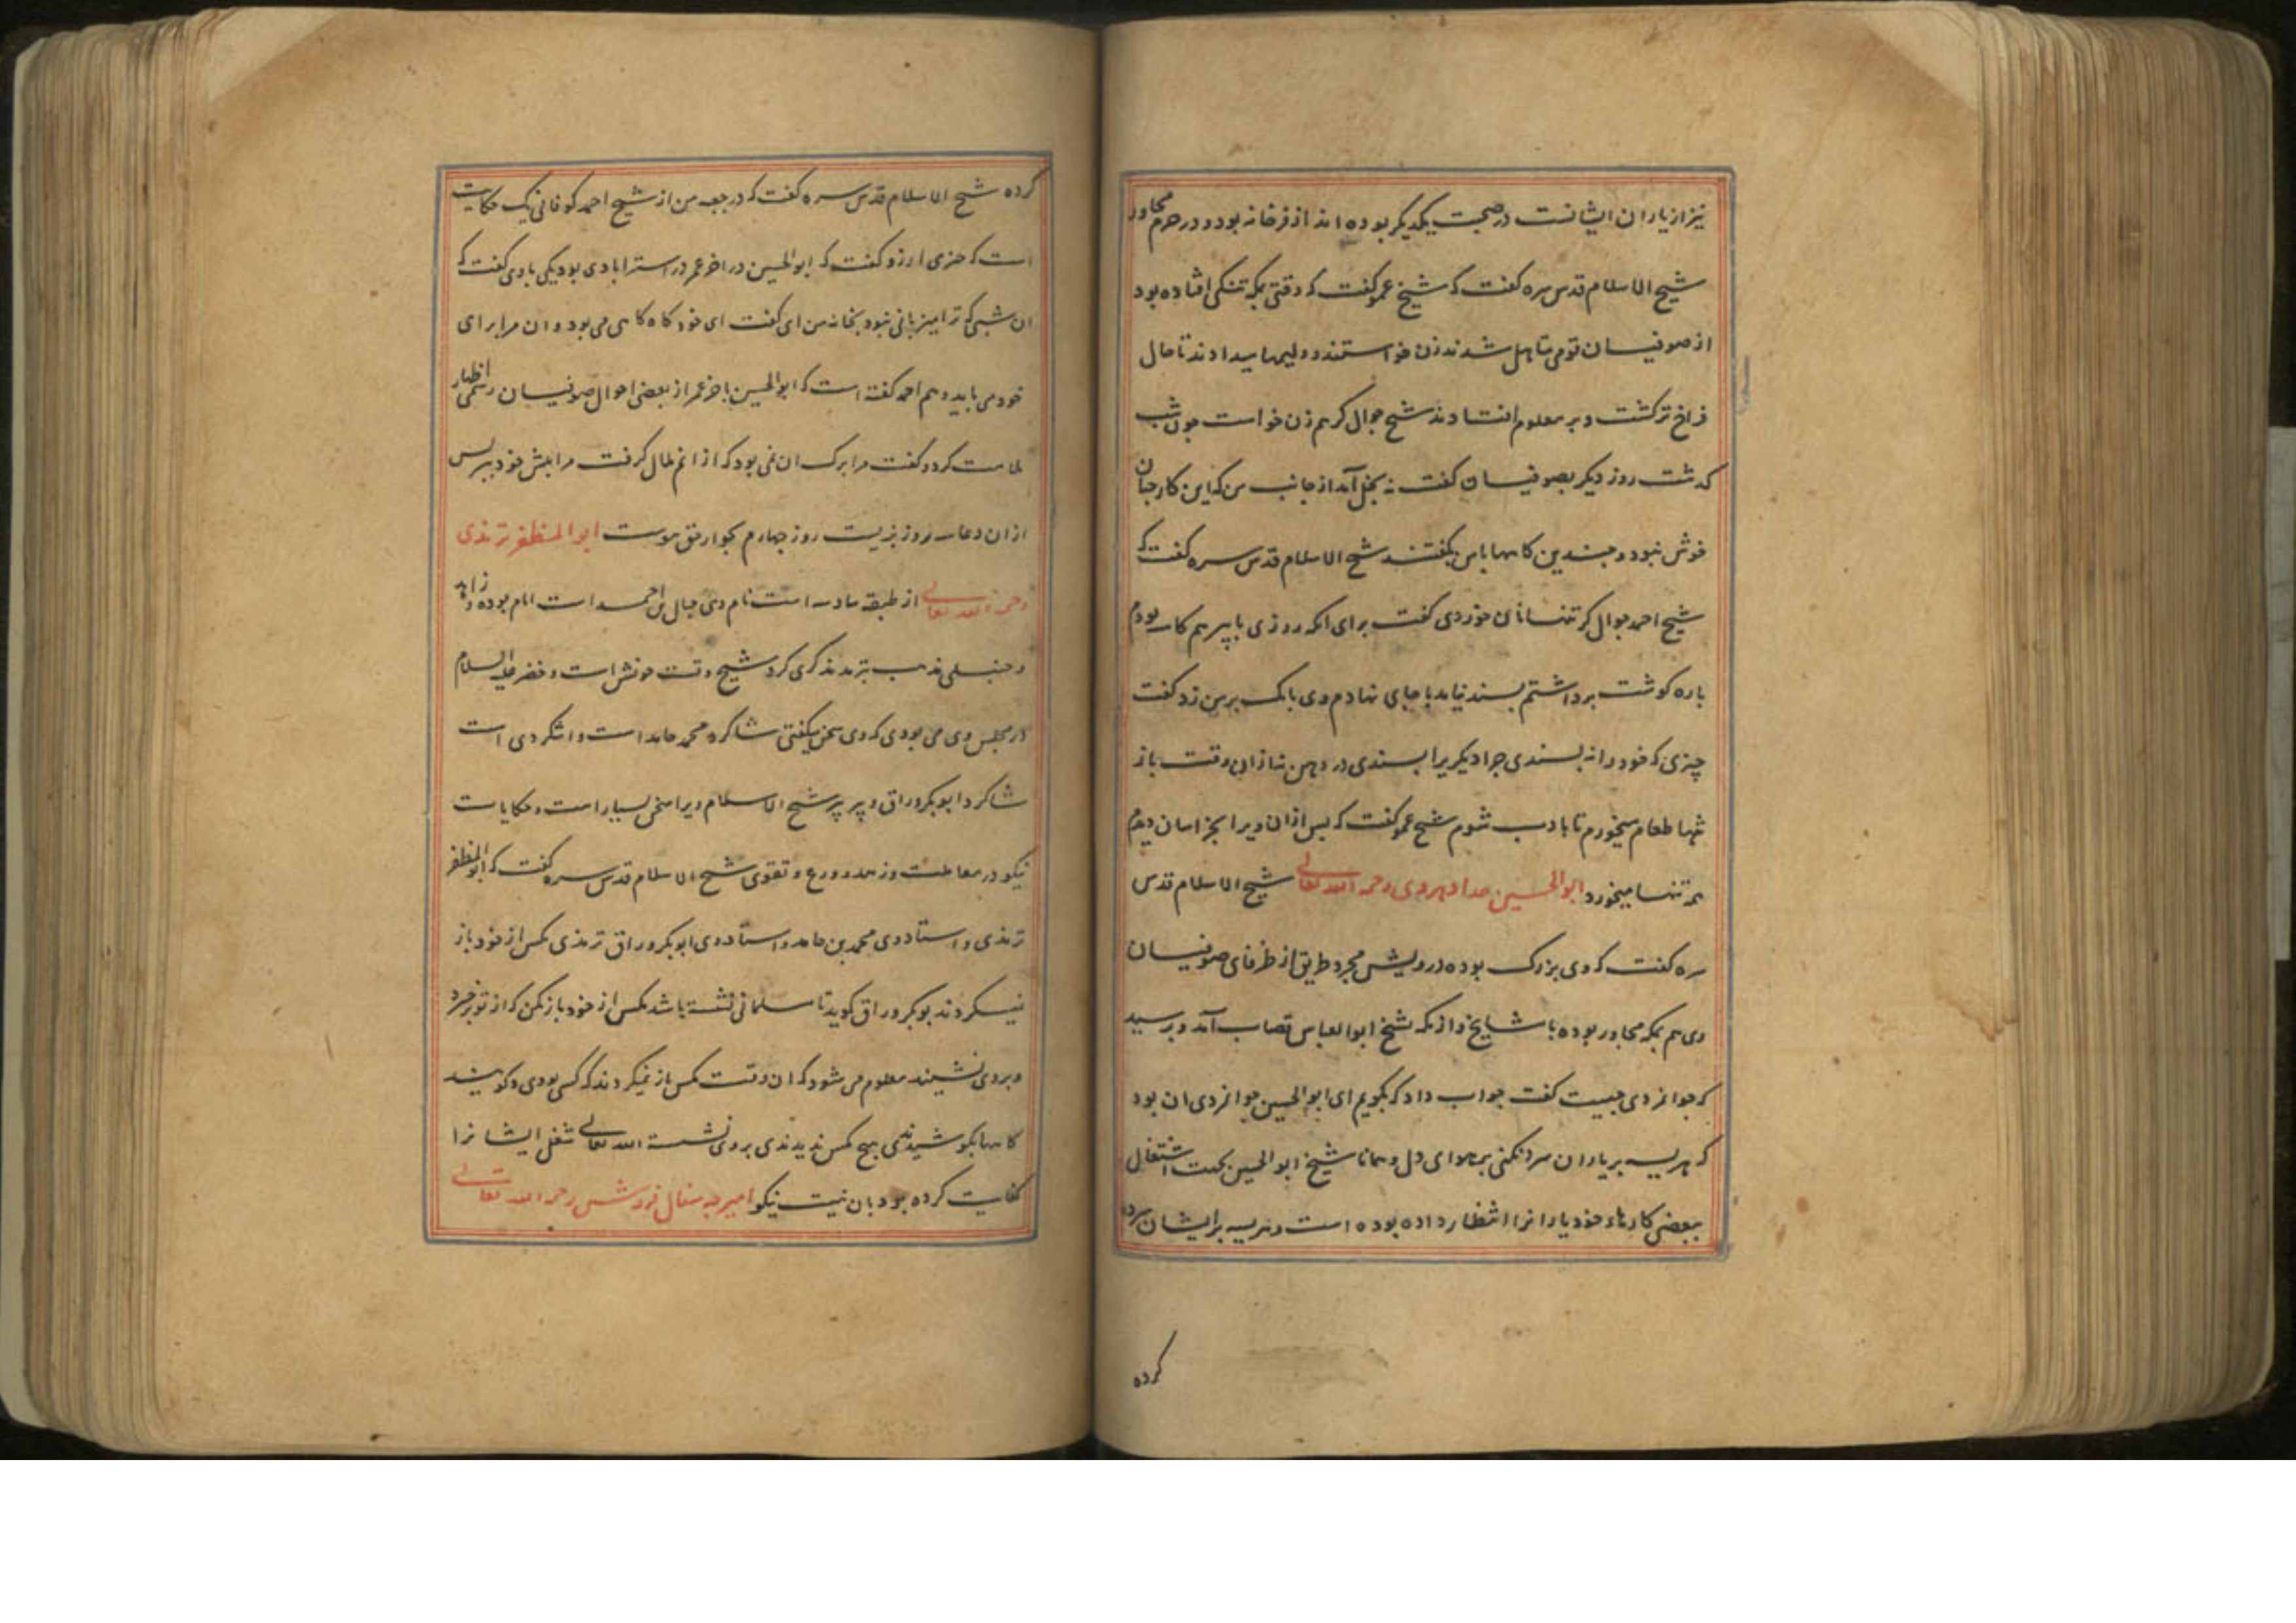 نیز از یاران ایشانست در صحبت یکدیگر بوده اند از فرغانه بود و در حرم مجاور
شیخ الاسلام قدس سره گفت که شیخ عمو گفت که وقتی بمکه تنگی افتاده بود
از صوفیان قومی متاهل شدند زن خواستند و ولیمها میدادند تا حال
فراخ تر گشت و بر معلوم افتادند شیخ جوال گر هم زن خواست چون شب
گذشت روز دیگر بصوفیان گفت نه بخل آمد از جانب من که این کار چنان
خوش نبود و چندین گاهها با من نگفتند شیخ الاسلام قدس سره گفت که
شیخ احمد جوال گر تنها نان خوردی گفت برای آنکه روزی با پیر هم کاسه بودم
پاره گوشت برداشتم پسند نیامد باجای نهادم وی بانگ بر من زد گفت
چیزی که خود را نه پسندی چرا دیگریرا پسندی در دهن نه از ان وقت باز
تنها طعام میخورم تا با ادب شوم شیخ عمو گفت که پس از ان ویرا بخراسان دیدم
هم تنها میخورد ابوالحسین حداد هروی رحمه الله تعالی شیخ الاسلام قدس
سره گفت که وی بزرگ بوده درویش مجرد طریق از ظرفای صوفیان
وی هم بمکه مجاور بوده با مشایخ و از مکه بشیخ ابوالعباس قصاب آمد وپرسید
که جوانمردی چیست گفت جواب داد که بگویم ای ابوالحسین جوانمردی ان بود
که هریسه بر یاران سرد نکنی بهوای دل و همانا شیخ ابوالحسین بجهت اشتغال
ببعضی کارهاء خود یارانرا انتظار داده بوده است و هریسه بر ایشان سرد
کرده
کرده شیخ الاسلام قدس سره گفت که در جمعه من از شیخ احمد کوفانی یک حکایت
است که چیزی ارزد گفت که ابوالحسین در اخر عمر در استراباد می بود یکی با وی گفت که
ان شب که ترا میزبانی نبود بخانه من ای گفت ای خود کاه کاهی می بود وان مرا برای
خود می باید وهم احمد گفته است که ابوالحسین باخر عمر از بعضی احوال صوفیان رسمی اظهار
ملامت کرد و گفت مرا برگ ان نمی بود که از انم ملال گرفت مرا پیش خود ببر پس
از ان دعا سه روز بزیست روز چهارم بجوار حق پیوست ابوالمظفر ترمذی
رحمه الله تعالی از طبقه سادسه است نام وی حبال بن احمد است امام بوده و زاهد
و حنبلی مذهب بترمذ مذکری کرد شیخ وقت خونش است و خضر علیه السلام
در مجلس وی می بودی که وی سخن میگفتی شاگرد محمد حامد است و اشکردی است
شاگرد ابوبکر وراق و پیر پیر شیخ الاسلام ویرا سخن بسیار است و حکایات
نیکو در معاملت و زهد و ورع و تقوی شیخ الاسلام قدس سره گفت که ابوالمظفر
ترمذی و استاد وی محمد بن حامد و استاد وی ابوبکر وراق ترمذی مگس از خود باز
نیسکردند بوبکر وراق گوید تا مسلمانی نشسته باشد مگس از خود باز مکن که از تو برخیزد
و بروی نشیند معلوم می شود که ان وقت مگس باز نمیکردند که کسی بودی و گویند
گاهها بکوشیدندی هیچ مگس ندیدندی بروی نشسته الله تعالی شغل ایشانرا
کفایت کرده بود بان نیت نیکو امیرچه سفال فروش رحمه الله تعالی